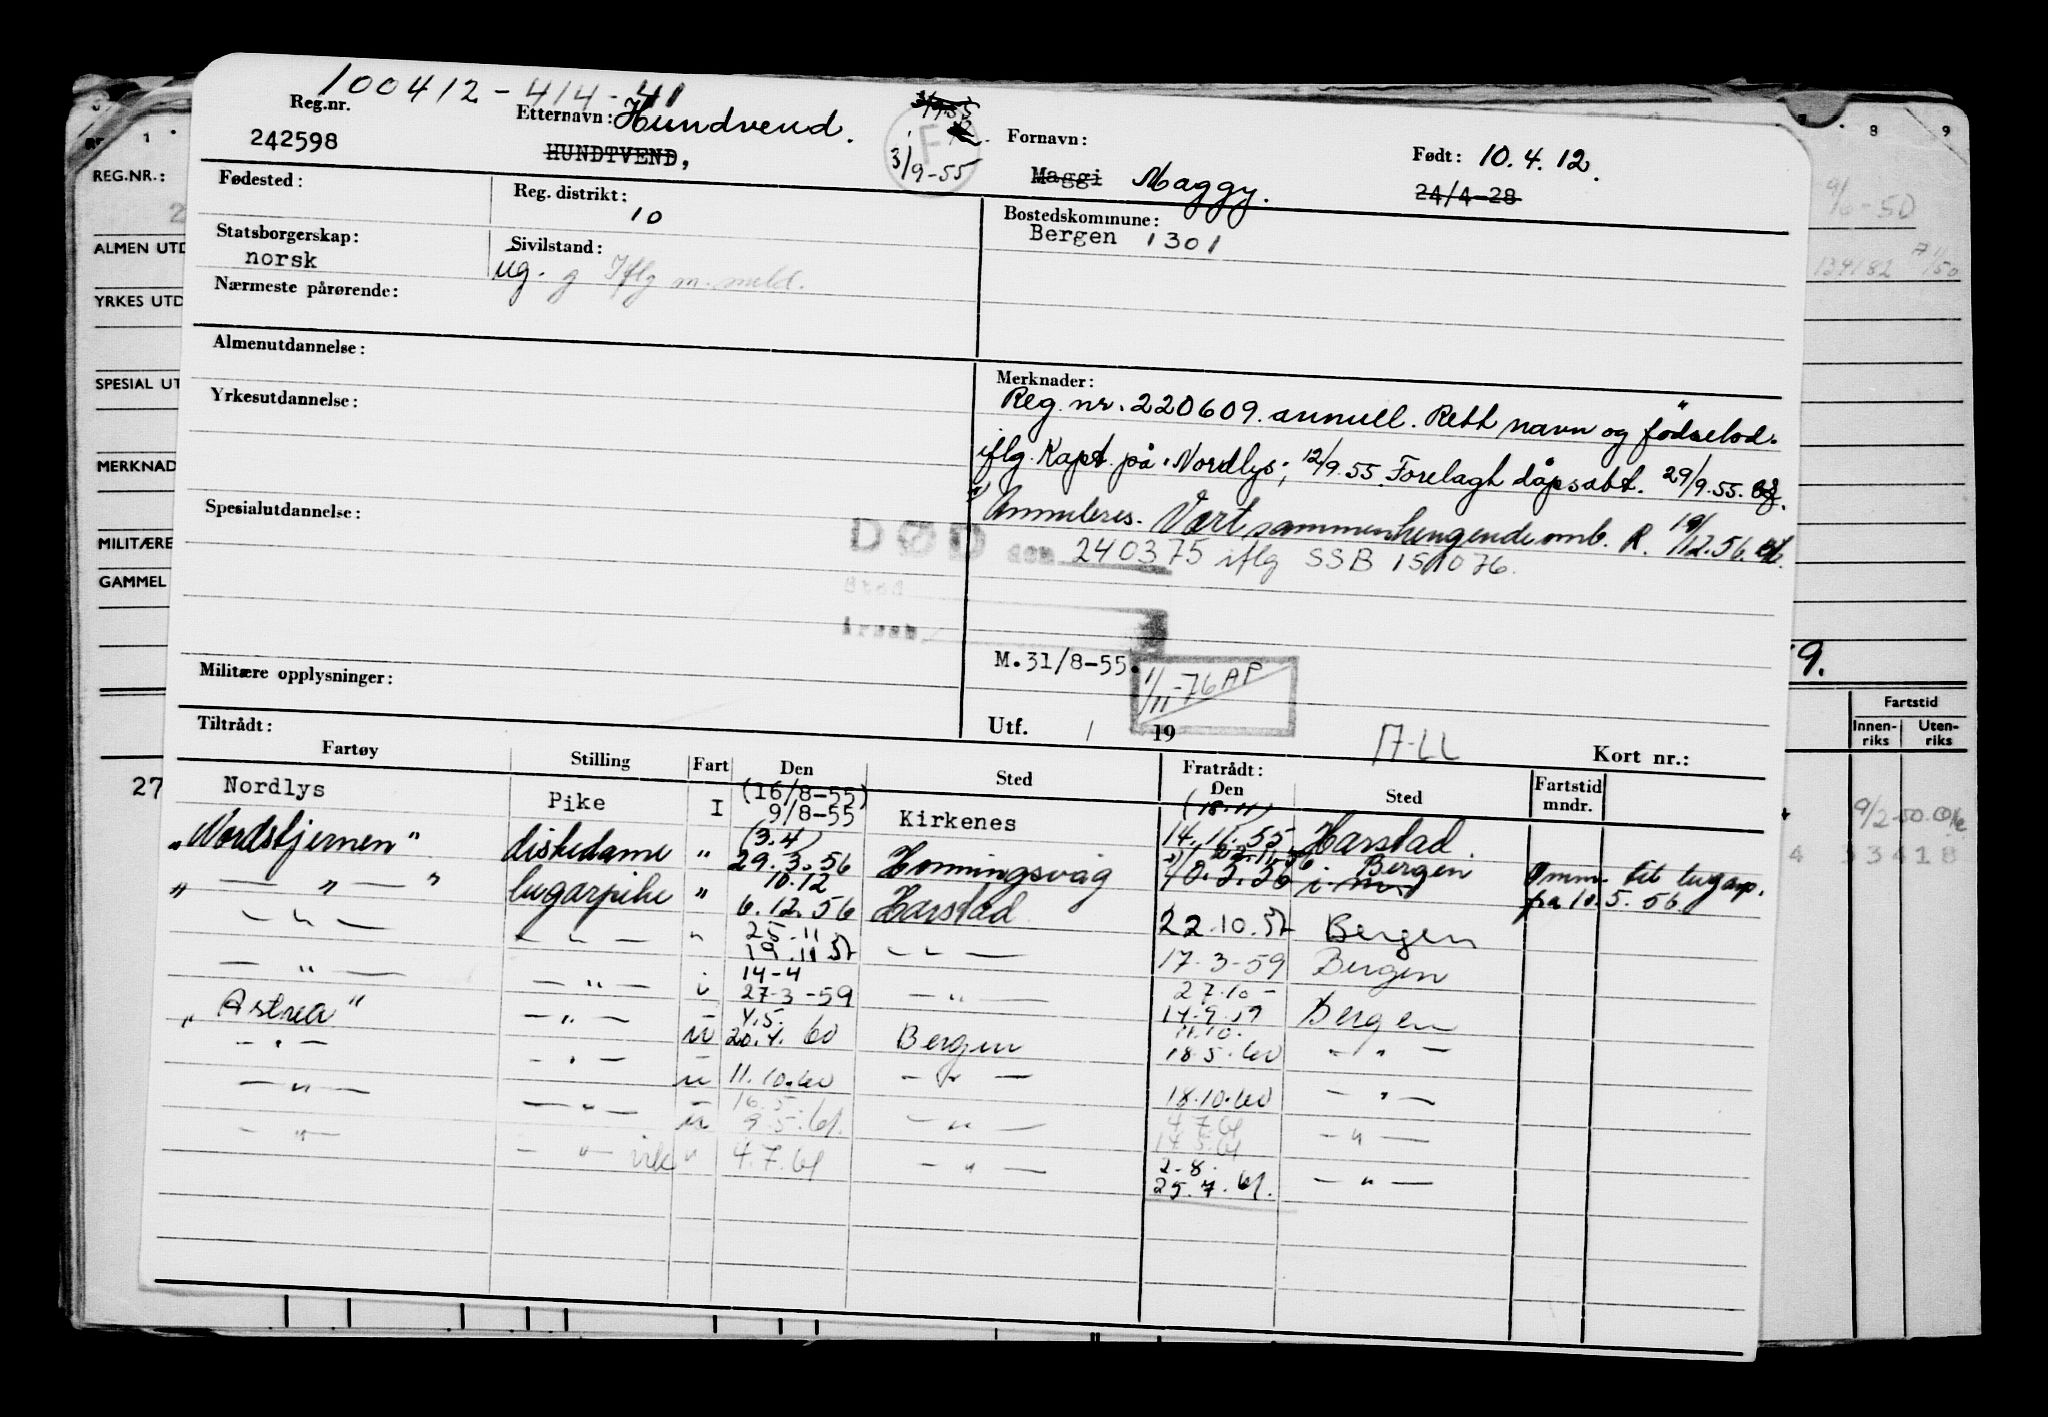 100412 - 414 - 41
Reg.nr. Etternavn: Hundvend. Fornavn: Født: 10.4.12.
242598 HUNDTVEND, 3/9-55 Maggi Maggy. 24/4-28
Fødested: Reg. distrikt: Bostedskommune:
10 Bergen 1301
Statsborgerskap: Sivilstand:
norsk ug. g Iflg m. meld.
Nærmeste pårørende:
Almenutdannelse: Merknader:
Yrkesutdannelse: Reg. nr. 220609. annull. Rett navn og fødselsd.
iflg. Kapt. på "Nordlys"; 12/9.55. Forelagt dåpsatt. 29/9.55.
Spesialutdannelse: Annuleres. Vært sammenhengende omb. R. 19/12.56.
DØD den 240375 iflg SSB 151076.
Sted
Årsak
Militære opplysninger: M.31/8-55. 1/11-76 AP
Tiltrådt: Utf. / 19 Kort nr.:
Fartøy Stilling Fart Den Sted Fratrådt: Den Sted Fartstid mndr.
Nordlys Pike I (16/8-55) 9/8-55 Kirkenes (18.11) 14.16.55 Harstad
"Nordstjernen" diskedame " (3.4) 29.3.56 Honningsvåg 22.11.56 10.5.56 Bergen Omm. til lugarp. fra 10.5.56
" — " — " lugarpike " 10.12 6.12.56 Harstad 22.10.57 Bergen
— " — — " — " 25.11 19.11.57 — " — 17-3-59 Bergen
— " — — " — " 14-4 27-3-59 — " — 27.10- 14.9.59 Bergen
"Astrea" — " — u 4.5. 20.4.60 Bergen 11.10. 18.5.60 — " —
— " — — " — u 11.10.60 — " — 18.10.60 — " —
— " — — " — u 16.5. 9.5.61. — " — 4.7.61 14.5.61 — " —
— " — — " — " 4.7.61 — " — 2.8. 25.7.61. — " —
REG.NR.:
ALMEN UTD
YRKES UTD
SPESIAL UT
MERKNAD
MILITÆRE
GAMMEL
27
8 9
9/6-50
134182
9.
Fartstid
Innen-riks Uten-riks
9/2-50.
4 33418